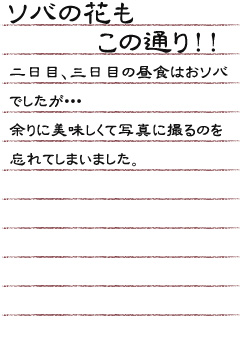 ソバの花も
この通り!!
二日目、三日目の昼食はおソバ
でしたが･･･
余りに美味しくて写真に撮るのを
忘れてしまいました。